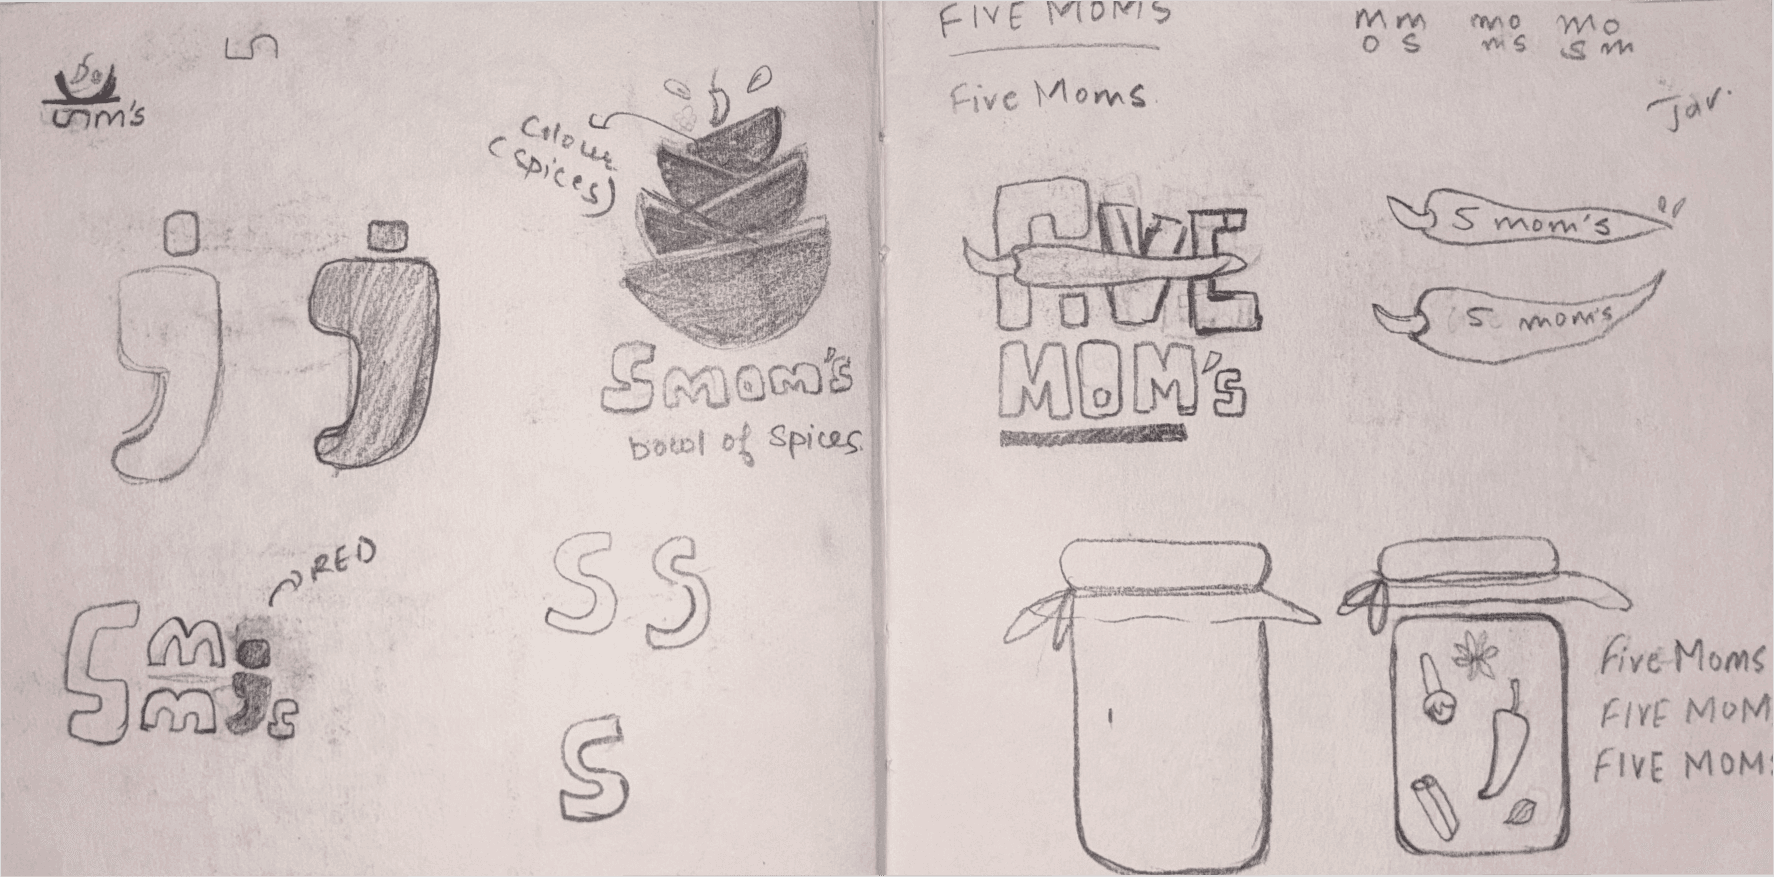 5
5m's
Colour
(spices)
5mom's
bowl of spices
RED
5 m
m's
S S
S
FIVE MOMS
Five Moms.
m m
o s
mo
ms
mo
sm
Jar.
FIVE
MOM's
5 mom's
5 mom's
Five Moms
FIVE MOM
FIVE MOM